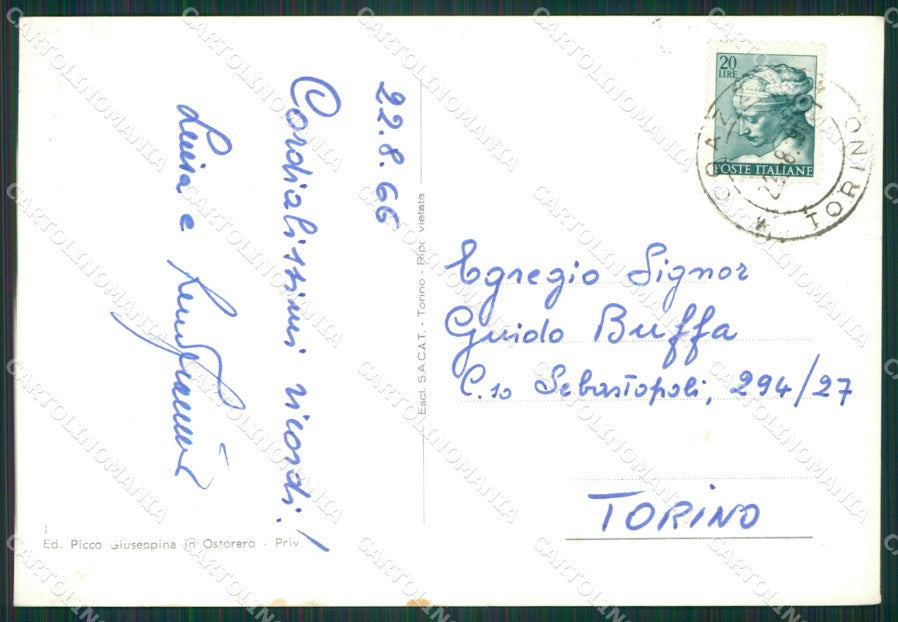 22.8.66
Cordialissimi ricordi!
Luisa e
Escl. S.A.C.A.T. - Torino - Ripr. vietata
Ed. Picco Giuseppina in Ostorero - Priv.
20
LIRE
POSTE ITALIANE
TORINO
Egregio Signor
Guido Buffa
C.so Sebastopoli, 294/27
TORINO
CARTOLINOMANIA